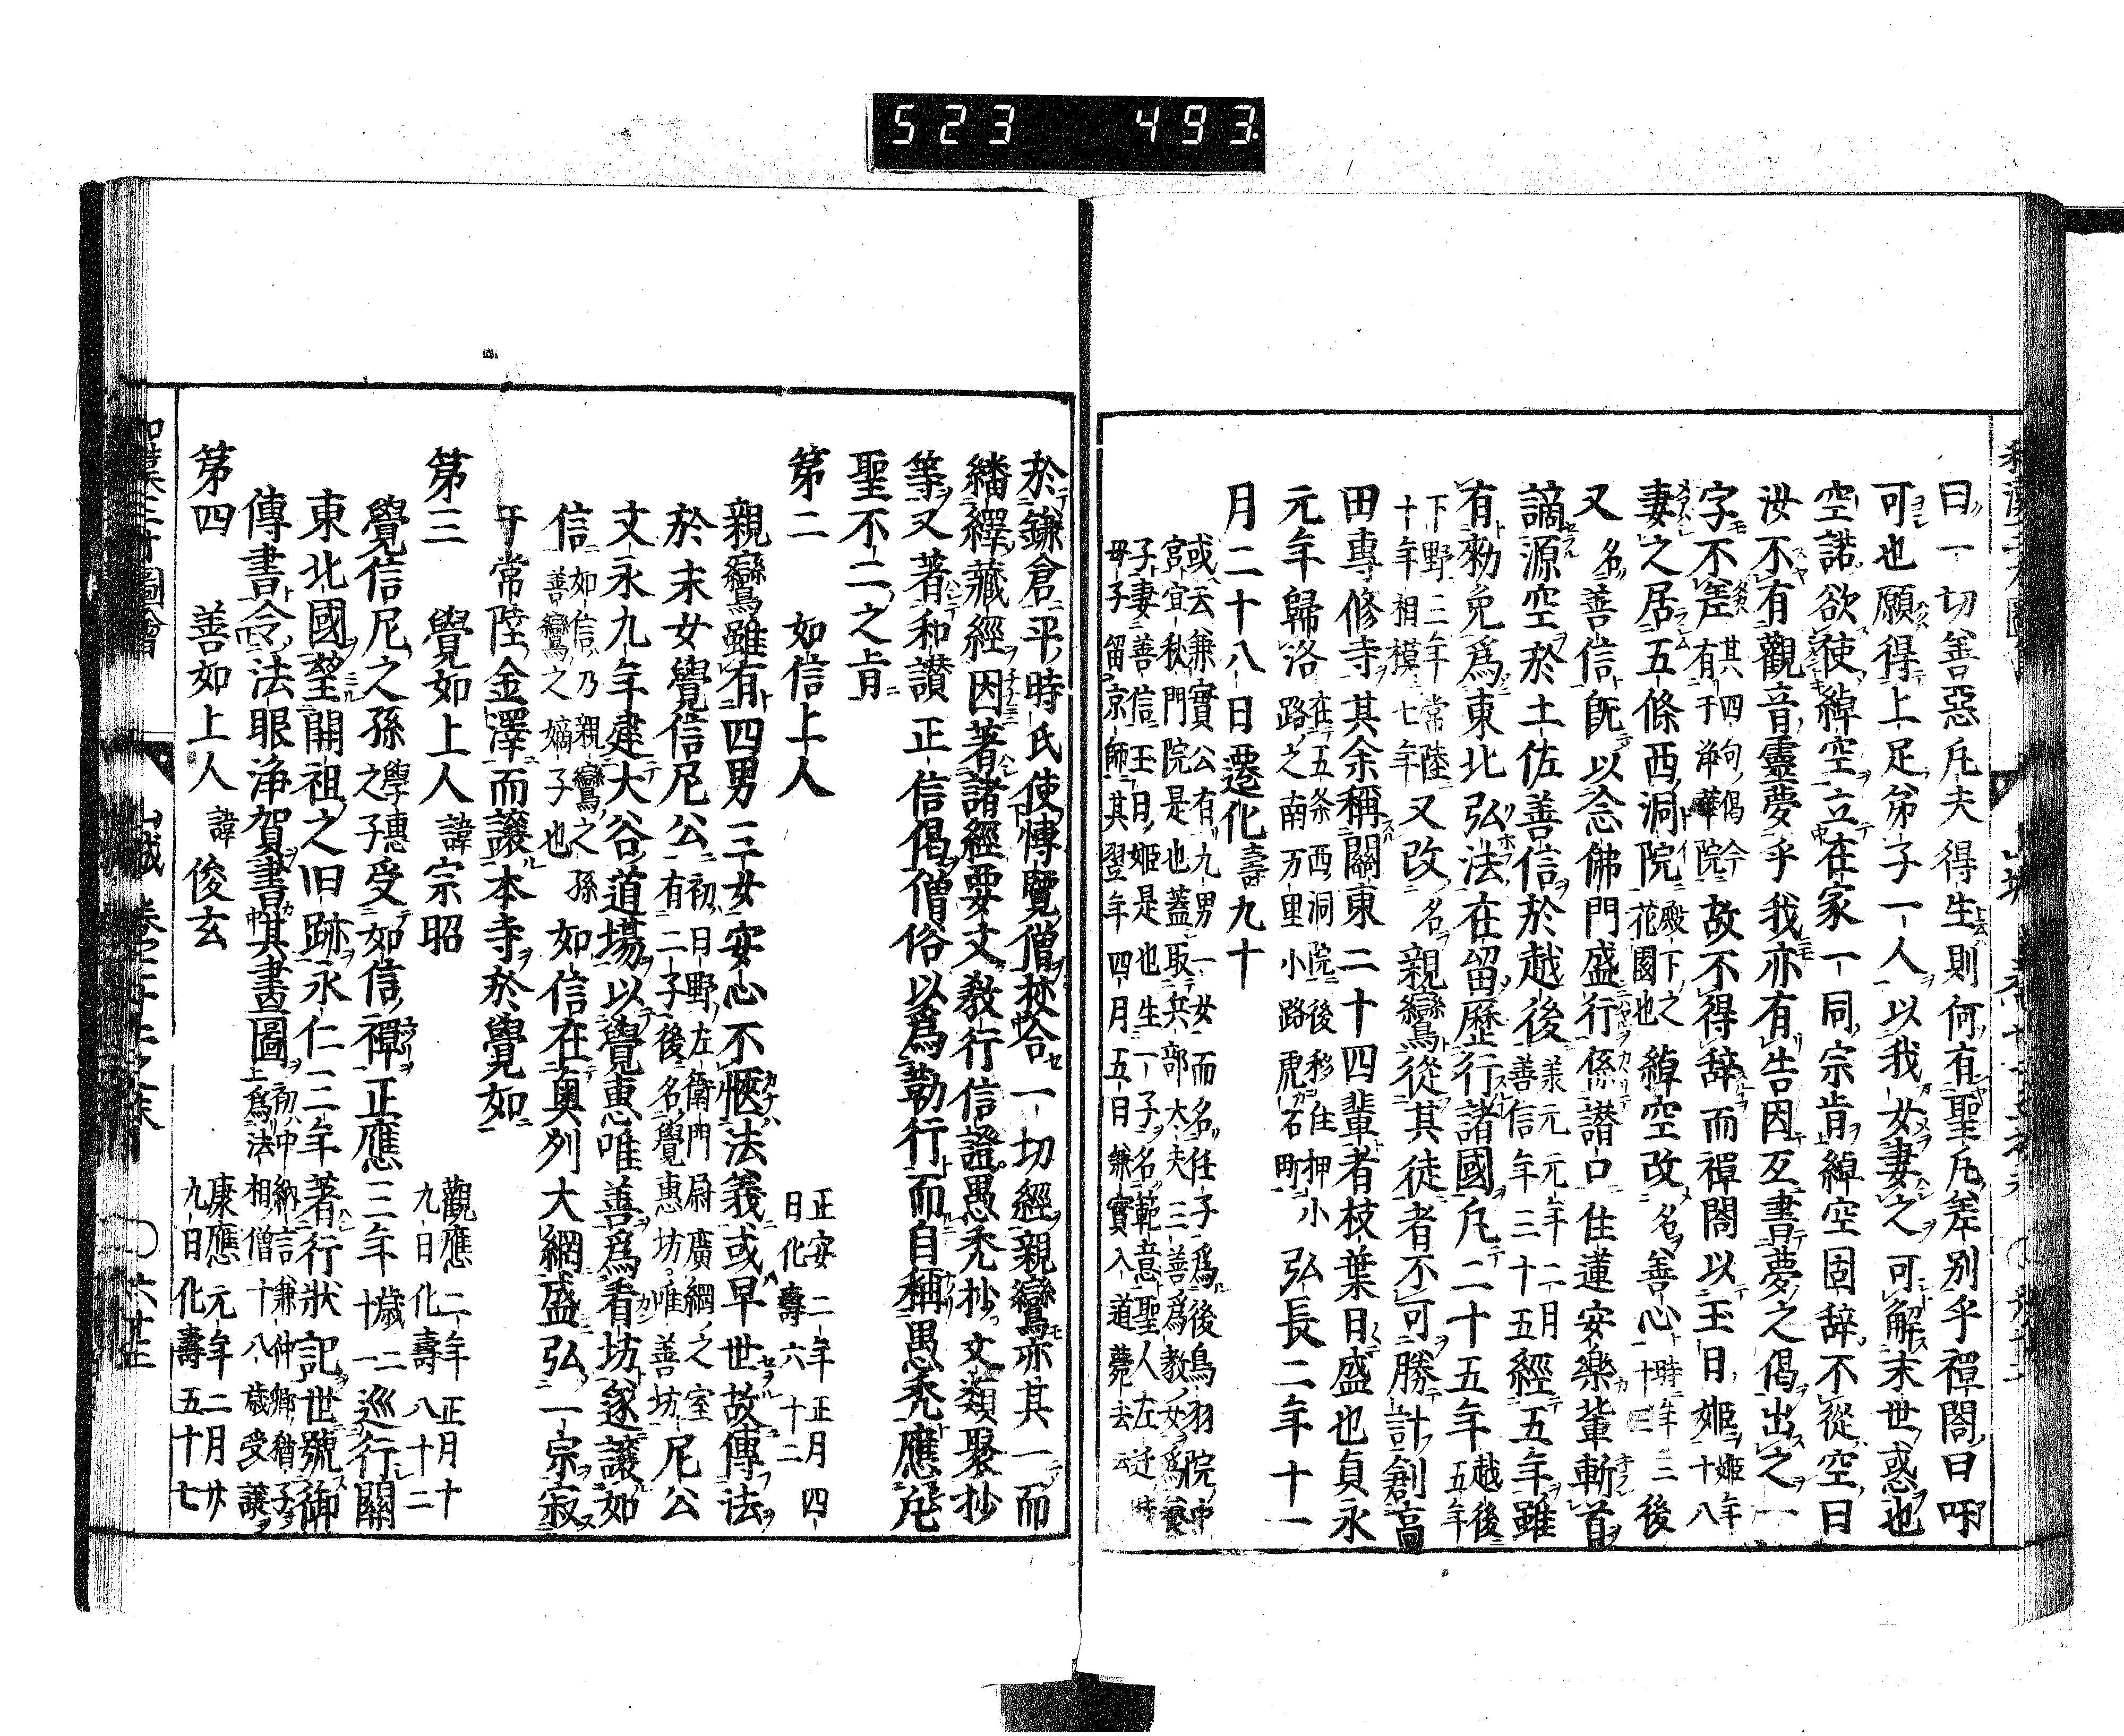 523 493.
曰一切善惡凡夫得生則何有聖凡差別乎禪閤曰吥
可也願得上足弟子一人以我女妻之可解末世惑也
空諾欲使綽空立在家一同宗肯綽空固辞不從空曰
汝不有觀音靈夢乎我亦有告因互書夢之偈出之一
字不差其四句偈今有于浄華院故不得辞而禪閤以玉日姬姬年十八
妻之居五條西洞院殿下之花園也綽空改名善心時年三十二後
又名善信既以念佛門盛行係譛口住蓮安樂輩斬首
謫源空於土佐善信於越後兼元元年二月善信年三十五經五年雖
有勅免為東北弘法在留歷行諸國凡二十五年越後五年
下野三年常陸十年相模七年又改名親鸞從其徒者不可勝計創高
田專修寺其余稱關東二十四輩者枝葉日盛也貞永
元年歸洛在五条西洞院後移住押小路之南万里小路虎石町弘長二年十一
月二十八日遷化壽九十
或云兼實公有九男一女而名任子為後鳥羽院中
宮宜秋門院是也蓋取兵部大夫三善為教女為養
子妻善信玉日姬是也生一子名範意聖人左迁時
母子留京師其翌年四月五日兼實入道薨去云
於鎌倉平時氏使愽覽僧挍合一切經親鸞亦其一而
繙繹藏經因著諸經要文敎行信證愚禿抄文類聚抄
等又著和讃正信偈僧俗以為勤行而自稱愚禿應凡
聖不二之㫖
第二 如信上人 正安二年正月四日化壽六十二
親鸞雖有四男三女安心不愜法義或早世故傳法
於末女覺信尼公初日野左衛門尉廣綱之室有二子後名覺惠坊唯善坊尼公
文永九年建大谷道場以覺惠唯善為看坊遂讓如
信如信乃親鸞之孫善鸞之嫡子也如信在奥列大網盛弘一宗寂
于常陸金澤而讓本寺於覺如
第三 覺如上人 諱宗昭 觀應二年正月十九日化壽八十二
覺信尼之孫學惠之子受如信禪正應三年歲二十一巡行關
東北國望開祖之旧跡永仁三年著行狀記世號御
傳書令法眼浄賀書其畫圖初中納言兼仲卿猶子為法相僧十八歲受讓
第四 善如上人 諱俊玄 康應元年二月廿九日化壽五十七